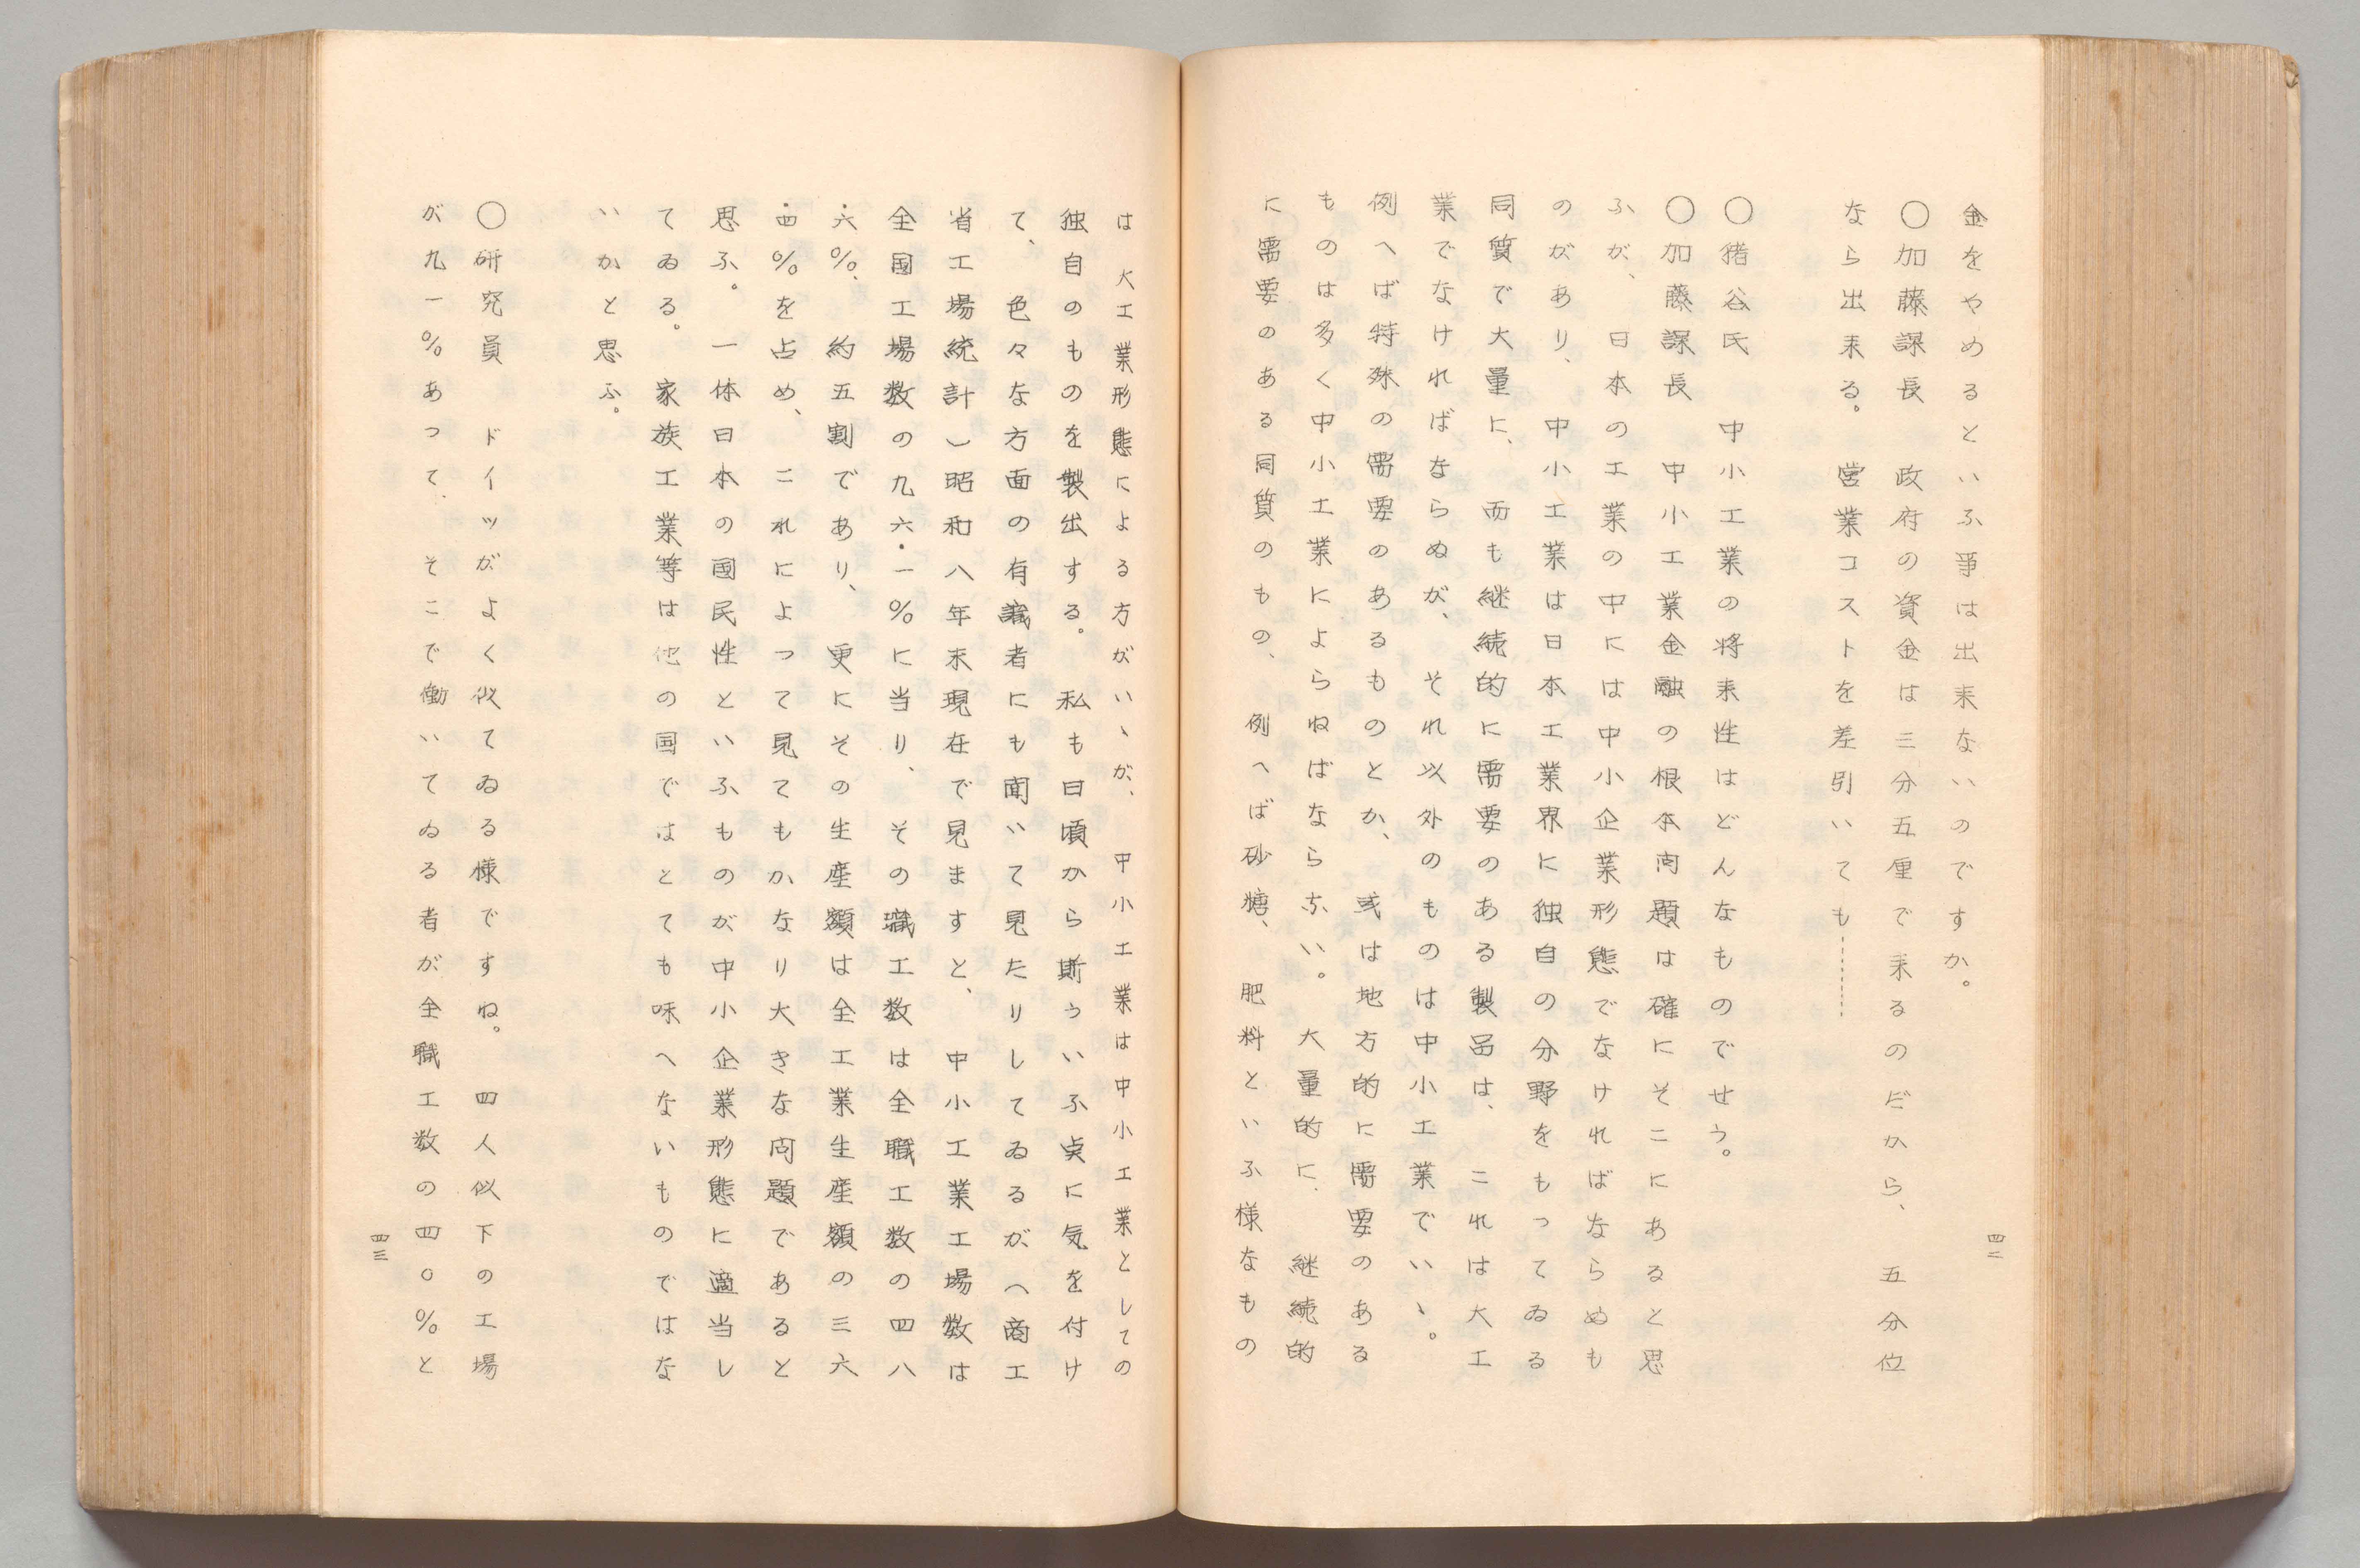 金をやめるといふ事は出来ないのですか。
〇加藤課長　政府の資金は三分五厘で来るのだから、五分位
なら出来る。営業コストを差引いても------
〇猪谷氏　中小工業の将来性はどんなものでせう。
〇加藤課長　中小工業金融の根本问題は確にそこにあると思
ふが、日本の工業の中には中小企業形態でなければならぬも
のがあり、中小工業は日本工業界に独自の分野をもってゐる
同質で大量に、而も継続的に需要のある製品は、これは大工
業でなければならぬが、それ以外のものは中小工業でいゝ。
例へば特殊の需要のあるものとか、或は地方的に需要のある
ものは多く中小工業によらねばならない。大量的に、継続的
に需要のある同質のもの、例へば砂糖、肥料といふ様なもの
四二
は大工業形態による方がいゝが、中小工業は中小工業としての
独自のものを製出する。私も日頃から斯ういふ点に気を付け
て、色々な方面の有識者にも聞いて見たりしてゐるが（商工
省工場統計）昭和八年末現在で見ますと、中小工業工場数は
全国工場数の九六・一％に当り、その職工数は全職工数の四八
・六％、約五割であり、更にその生産額は全工業生産額の三六
・四％を占め、これによって見てもかなり大きな问題であると
思ふ。一体日本の国民性といふものが中小企業形態に適当し
てゐる。家族工業等は他の国ではとても味へないものではな
いかと思ふ。
〇研究員　ドイツがよく似てゐる様ですね。四人似下の工場
が九一％あって、そこで働いてゐる者が全職工数の四〇％と
四三